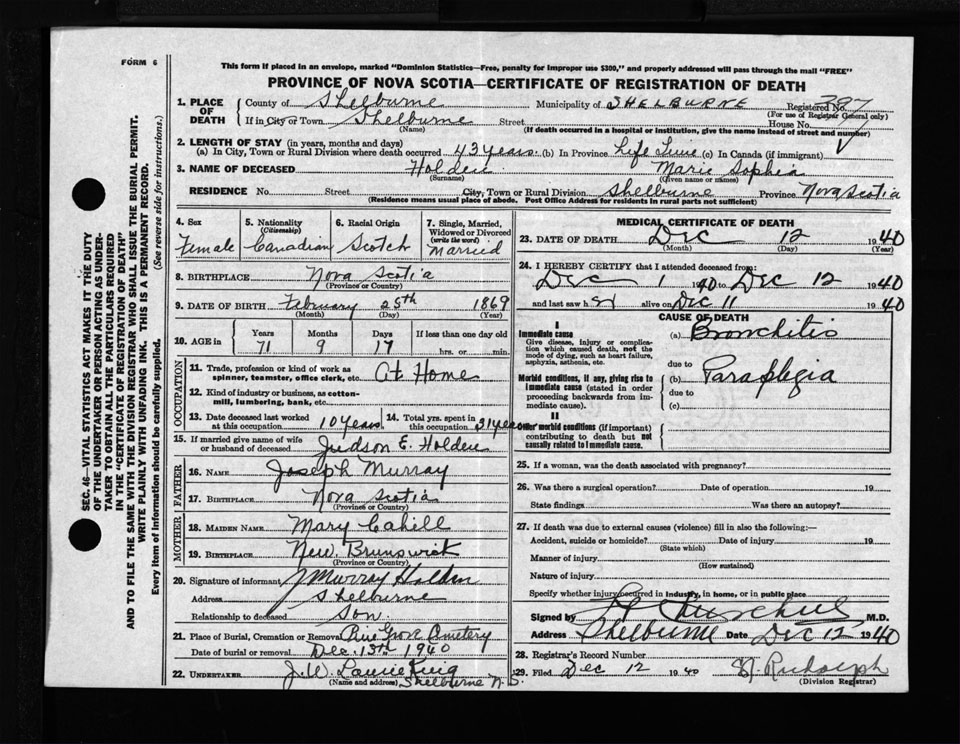 FORM 6
This form if placed in an envelope, marked "Dominion Statistics—Free, penalty for improper use $300," and properly addressed will pass through the mail "FREE"
PROVINCE OF NOVA SCOTIA—CERTIFICATE OF REGISTRATION OF DEATH
SEC. 46—VITAL STATISTICS ACT MAKES IT THE DUTY
OF THE UNDERTAKER OR PERSON ACTING AS UNDER-
TAKER TO OBTAIN ALL THE PARTICULARS REQUIRED
IN THE "CERTIFICATE OF REGISTRATION OF DEATH"
AND TO FILE THE SAME WITH THE DIVISION REGISTRAR WHO SHALL ISSUE THE BURIAL PERMIT.
WRITE PLAINLY WITH UNFADING INK. THIS IS A PERMANENT RECORD.
Every item of Information should be carefully supplied. (See reverse side for instructions.)
1. PLACE OF DEATH County of Shelburne Municipality of SHELBURNE Registered No. 397
(For use of Registrar General only)
If in City or Town Shelburne Street House No.
(Name) (If death occurred in a hospital or institution, give the name instead of street and number)
2. LENGTH OF STAY (in years, months and days)
(a) In City, Town or Rural Division where death occurred 43 years (b) In Province Life Time (c) In Canada (if immigrant)
3. NAME OF DECEASED Holden Marie Sophia
(Surname) (Given name or names)
RESIDENCE No. Street City, Town or Rural Division Shelburne Province Nova Scotia
(Residence means usual place of abode. Post Office Address for residents in rural parts not sufficient)
4. Sex Female
5. Nationality (Citizenship) Canadian
6. Racial Origin Scotch
7. Single, Married, Widowed or Divorced (write the word) Married
8. BIRTHPLACE Nova Scotia
(Province or Country)
9. DATE OF BIRTH February 25th 1869
(Month) (Day) (Year)
10. AGE in Years Months Days If less than one day old
71 9 17 hrs. or min.
OCCUPATION
11. Trade, profession or kind of work as spinner, teamster, office clerk, etc. At Home
12. Kind of industry or business, as cotton-mill, lumbering, bank, etc.
13. Date deceased last worked at this occupation 10 years
14. Total yrs. spent in this occupation 21 years
15. If married give name of wife or husband of deceased Judson E. Holden
FATHER
16. NAME Joseph Murray
17. BIRTHPLACE Nova Scotia
(Province or Country)
MOTHER
18. MAIDEN NAME Mary Cahill
19. BIRTHPLACE New Brunswick
(Province or Country)
20. Signature of informant J Murray Holden
Address Shelburne
Relationship to deceased Son
21. Place of Burial, Cremation or Removal Pine Grove Cemetery
Date of burial or removal Dec. 13th 1940
22. UNDERTAKER J. W. Shelburne N. S.
(Name and address)
MEDICAL CERTIFICATE OF DEATH
23. DATE OF DEATH Dec 12 1940
(Month) (Day) (Year)
24. I HEREBY CERTIFY that I attended deceased from:
Dec 1 1940 to Dec 12 1940
and last saw h er alive on Dec 11 1940
CAUSE OF DEATH
I
Immediate cause
Give disease, injury or complication which caused death, not the mode of dying, such as heart failure, asphyxia, asthenia, etc.
(a) Bronchitis
due to
Morbid conditions, if any, giving rise to immediate cause (stated in order proceeding backwards from immediate cause).
(b) Paraplegia
due to
(c)
II
Other morbid conditions (if important) contributing to death but not causally related to immediate cause.
25. If a woman, was the death associated with pregnancy?
26. Was there a surgical operation? Date of operation 19
State findings Was there an autopsy?
27. If death was due to external causes (violence) fill in also the following:—
Accident, suicide or homicide? Date of injury 19
(State which)
Manner of injury
(How sustained)
Nature of injury
Specify whether injury occurred in Industry, in home, or in public place
Signed by Churchill M.D.
Address Shelburne Date Dec 12 1940
28. Registrar's Record Number
29. Filed Dec 12 1940 Rudolph
(Division Registrar)